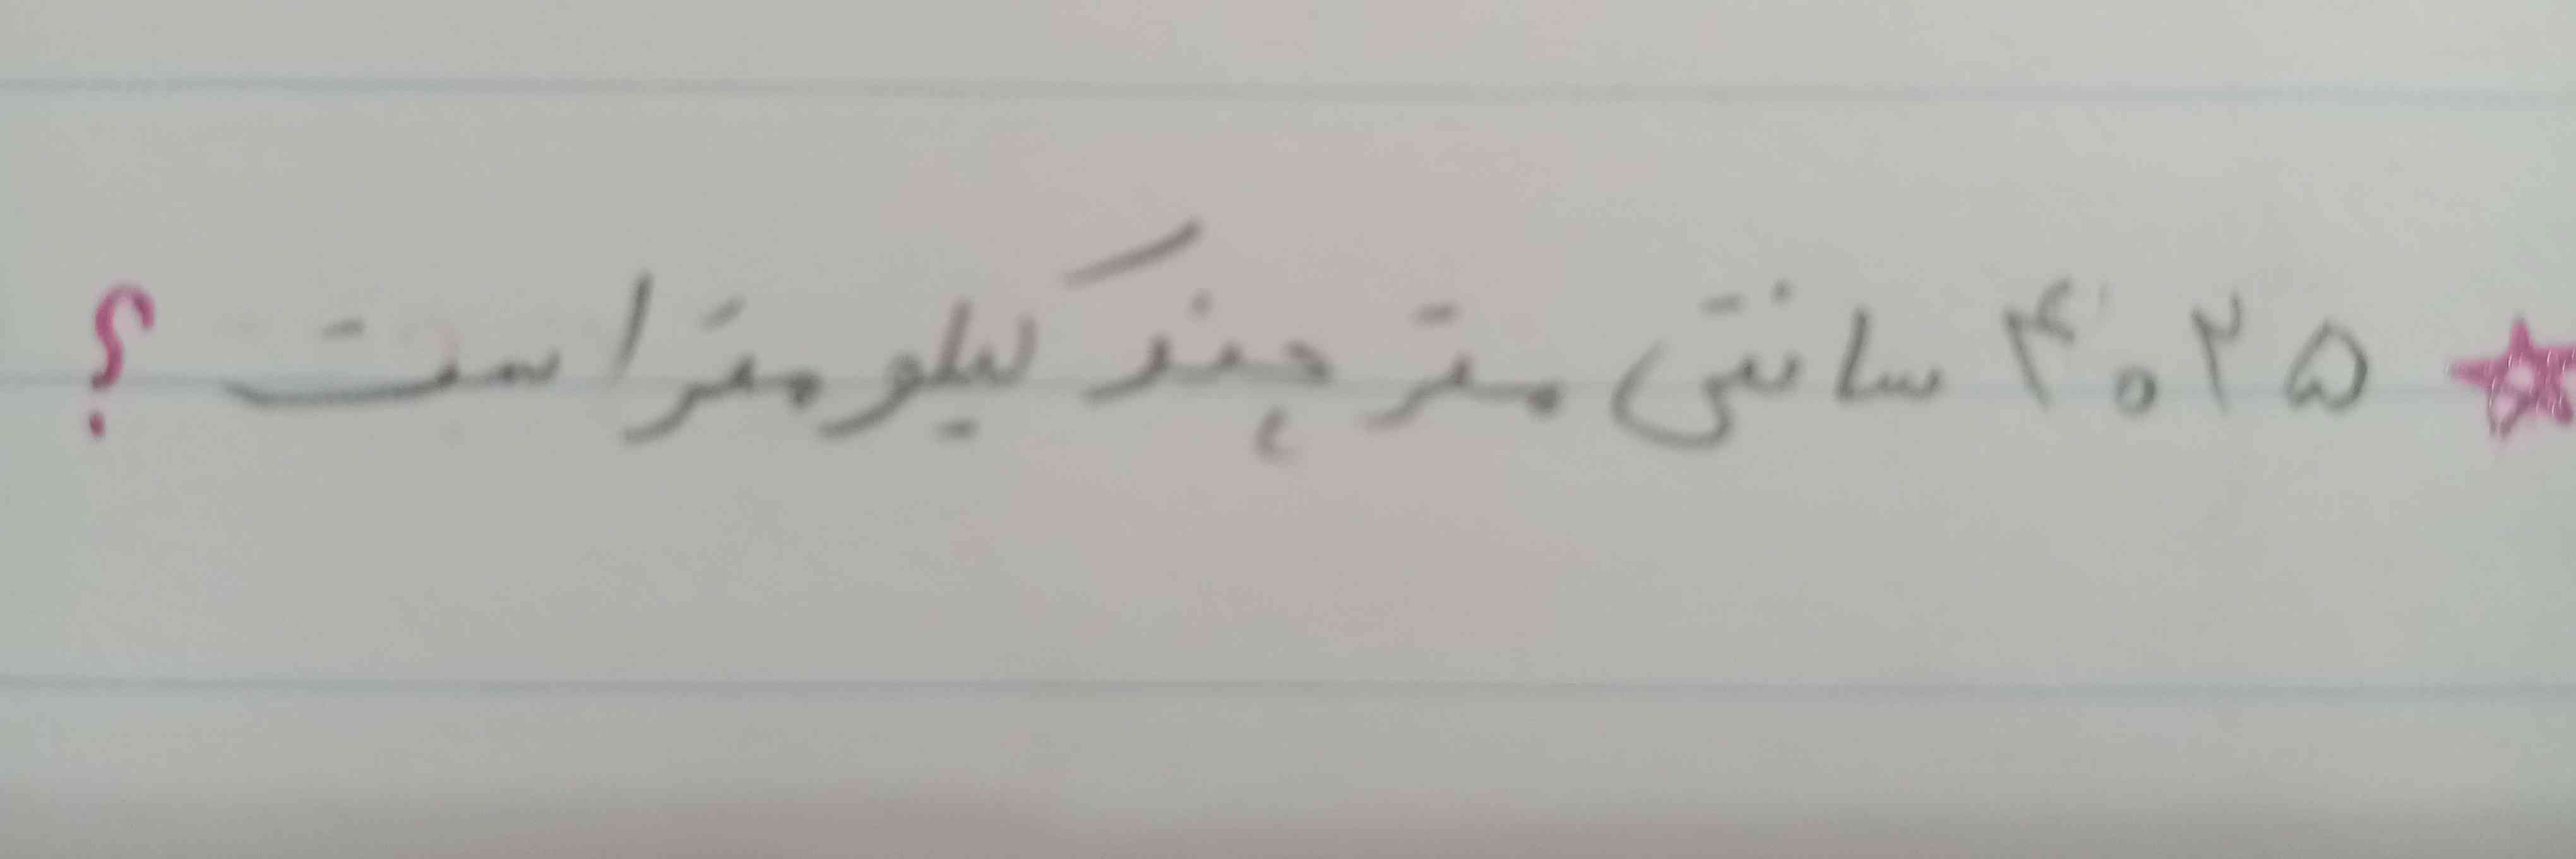 ۴۰۲۵ سانتی متر چند کیلومتر است ؟